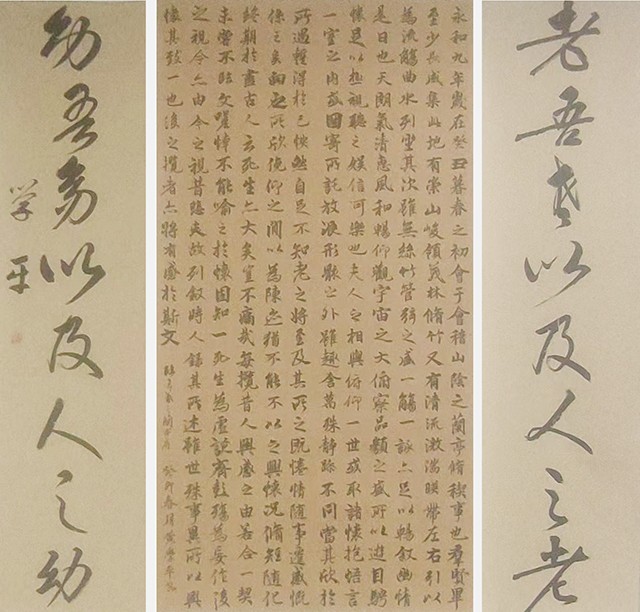 老吾老以及人之老
永和九年歲在癸丑暮春之初會于會稽山陰之蘭亭脩稧事也羣賢畢
至少長咸集此地有崇山峻領茂林脩竹又有清流激湍暎帶左右引以
為流觴曲水列坐其次雖無絲竹管弦之盛一觴一詠亦足以暢叙幽情
是日也天朗氣清惠風和暢仰觀宇宙之大俯察品類之盛所以遊目騁
懷足以極視聽之娱信可樂也夫人之相與俯仰一世或取諸懷抱悟言
一室之内或因寄所託放浪形骸之外雖趣舍萬殊静躁不同當其欣於
所遇蹔得於己怏然自足不知老之將至及其所之既惓情隨事遷感慨
係之矣向之所欣俛仰之間以為陳迹猶不能不以之興懷況脩短隨化
終期於盡古人云死生亦大矣豈不痛哉每攬昔人興感之由若合一契
未嘗不臨文嗟悼不能喻之於懷固知一死生為虛誕齊彭殤為妄作後
之視今亦由今之視昔悲夫故列叙時人錄其所述雖世殊事異所以興
懷其致一也後之攬者亦將有感於斯文 癸卯春月
幼吾幼以及人之幼
学平